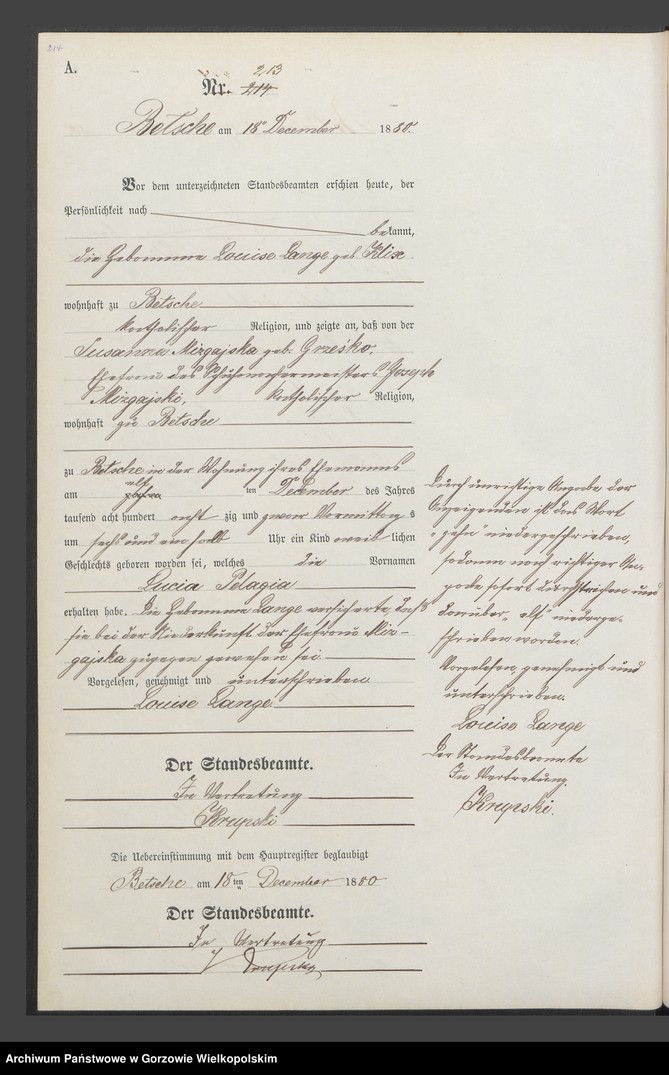 214.
A.
213
Nr. 214
Betsche am 18ten December 1880.
Vor dem unterzeichneten Standesbeamten erschien heute, der
Persönlichkeit nach
bekannt,
die Hebamme Louise Lange geb Klix
wohnhaft zu Betsche
katholischer Religion, und zeigte an, daß von der
Susanna Mizgajska geb. Grzesko,
Ehefrau des Schuhmachermeisters Joseph
Mizgajski, katholischer Religion,
wohnhaft zu Betsche
zu Betsche in der Wohnung ihres Ehemannes
elf
am zehn ten December des Jahres
tausend acht hundert acht zig und zwar Vormittag s
um sechs und ein halb Uhr ein Kind weib lichen
Geschlechts geboren worden sei, welches die Vornamen
Lucia Pelagia
erhalten habe. Die Hebamme Lange versicherte, daß
sie bei der Niederkunft der Ehefrau Miz-
gajska zugegen gewesen sei.
Vorgelesen, genehmigt und unterschrieben
Louise Lange
Der Standesbeamte.
In Vertretung
Krupski
Die Uebereinstimmung mit dem Hauptregister beglaubigt
Betsche am 18ten December 1880
Der Standesbeamte.
In Vertretung
Krupski
Durch unrichtige Angabe der
Anzeigenden ist das Wort
"zehn" niedergeschrieben,
sodann nach richtiger An-
gabe sofort durchstrichen und
darüber "elf" niederge-
schrieben worden.
Vorgelesen, genehmigt und
unterschrieben.
Louise Lange
Der Standesbeamte
In Vertretung.
Krupski.
Archiwum Państwowe w Gorzowie Wielkopolskim